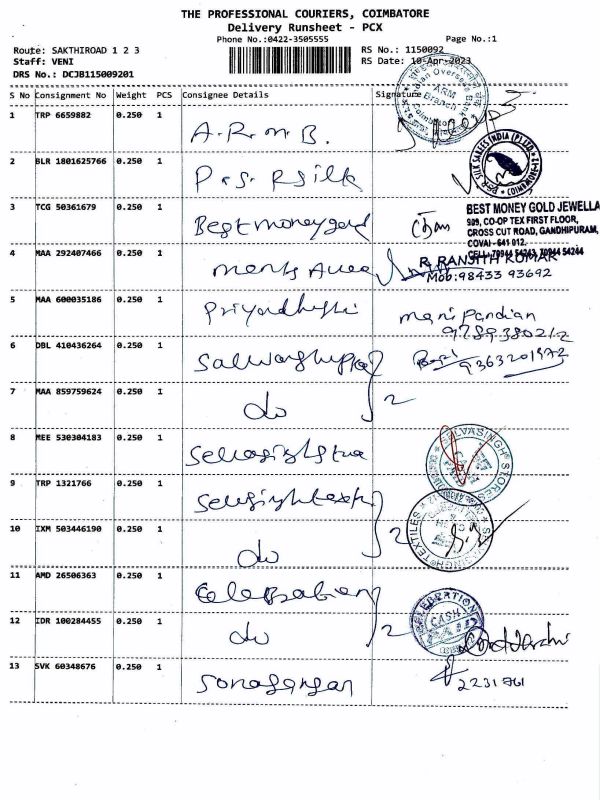 THE PROFESSIONAL COURIERS, COIMBATORE
Delivery Runsheet - PCX
Phone No.:0422-3505555
Page No.:1
Route: SAKTHIROAD 1 2 3
RS No.: 1150092
Staff: VENI
RS Date: 10-Apr-2023
DRS No.: DCJB115009201
S No Consignment No Weight PCS Consignee Details Signature
Indian Overseas Bank
ARM Branch
Coimbatore
1 TRP 6659882 0.250 1 A.R.M.B.
2 BLR 1801625766 0.250 1 P.S.R Silk
PSR SILK SAREES INDIA (P) LTD. COIMBATORE-12
3 TCG 50361679 0.250 1 Best money gold
BEST MONEY GOLD JEWELLA
909, CO-OP TEX FIRST FLOOR,
CROSS CUT ROAD, GANDHIPURAM,
COVAI - 641 012.
CELL: 70944 54243, 70944 54244
4 MAA 292407466 0.250 1 Mens Avenue
R. RANJITH KUMAR
Mob:98433 93692
5 MAA 600035186 0.250 1
Mani Pandian
9789380212
6 DBL 410436264 0.250 1
9363201972
7 MAA 859759624 0.250 1 do 2
8 MEE 530304183 0.250 1
SELVASINGH STORES
9 TRP 1321766 0.250 1
SELVASINGH TEXTILES
10 IXM 503446190 0.250 1 do 2
11 AMD 26506363 0.250 1 Celebration
CELEBRATION
CASH
PAID
12 IDR 100284455 0.250 1 do 2
13 SVK 60348676 0.250 1
2231761